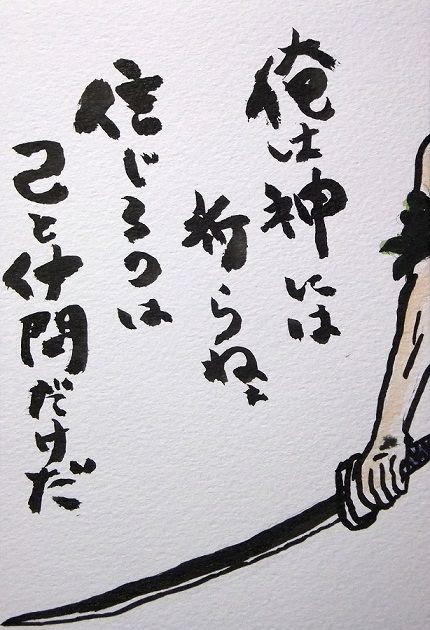 俺は神には
祈らねぇ
信じるのは
己と仲間だけだ